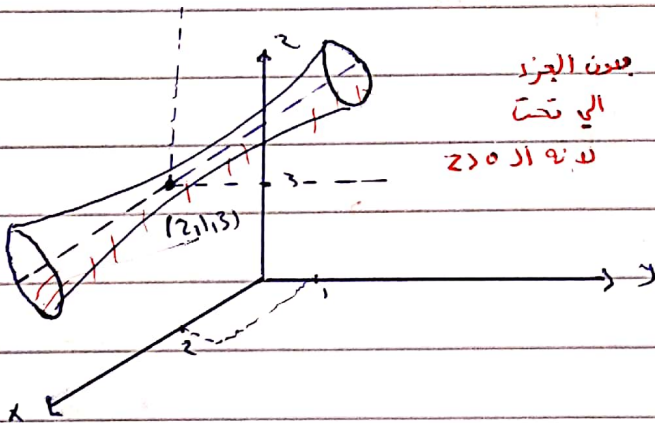 z
بدون الجزء
الي تحت
لانه ال z>0
3
(2,1,3)
y
1
2
x